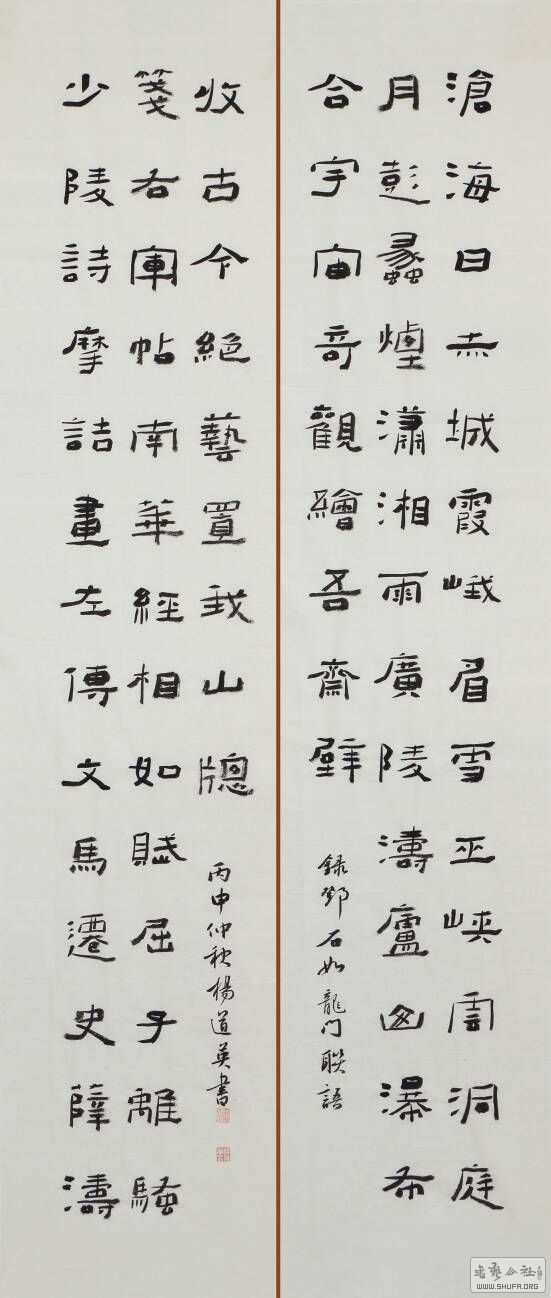 滄海日赤城霞峨眉雪巫峽雲洞庭
月彭蠡煙瀟湘雨廣陵濤廬山瀑布
合宇宙奇觀繪吾齋壁
錄鄧石如龍門聯語
少陵詩摩詰畫左傳文馬遷史薛濤
箋右軍帖南華經相如賦屈子離騷
收古今絕藝置我山牕
丙申仲秋楊道英書
书艺公社
WWW.SHUFA.ORG